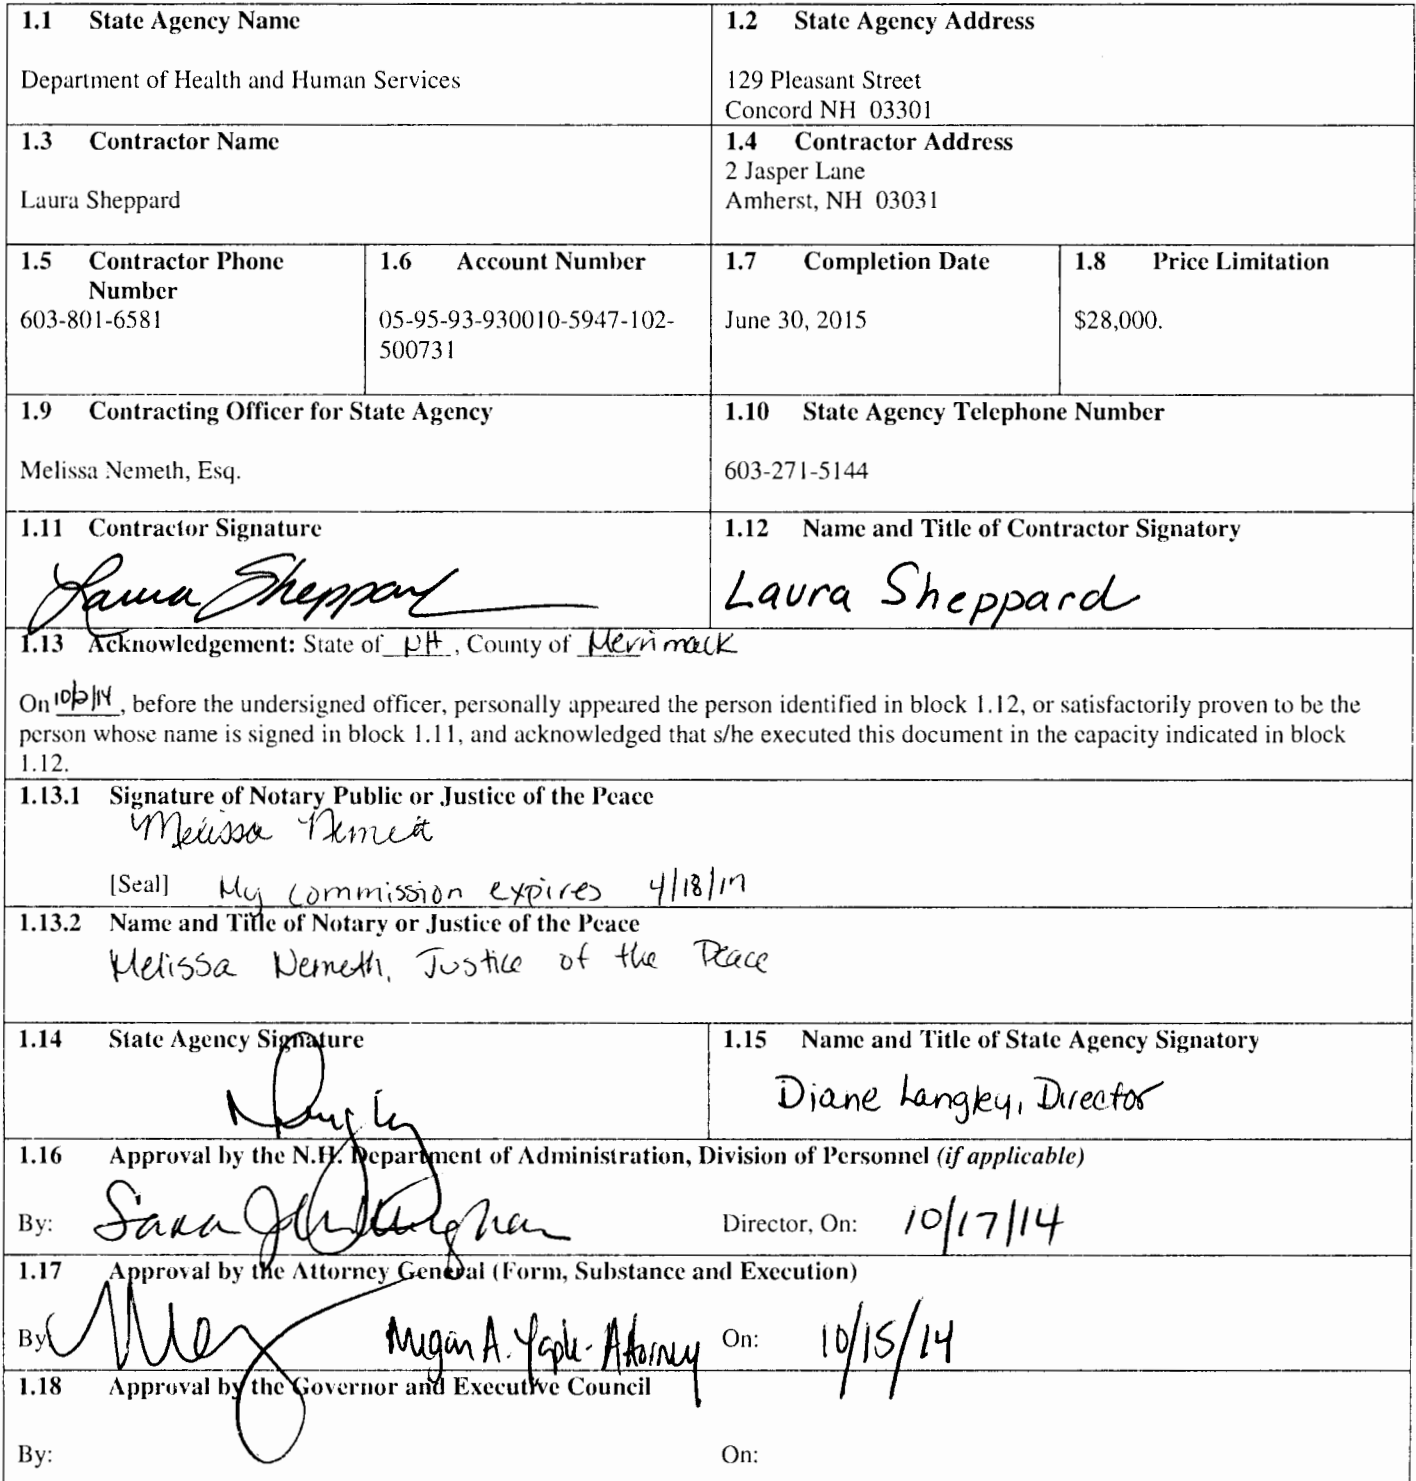 1.1 State Agency Name
Department of Health and Human Services
1.2 State Agency Address
129 Pleasant Street
Concord NH 03301
1.3 Contractor Name
Laura Sheppard
1.4 Contractor Address
2 Jasper Lane
Amherst, NH 03031
1.5 Contractor Phone
Number
603-801-6581
1.6 Account Number
05-95-93-930010-5947-102-
500731
1.7 Completion Date
June 30, 2015
1.8 Price Limitation
$28,000.
1.9 Contracting Officer for State Agency
Melissa Nemeth, Esq.
1.10 State Agency Telephone Number
603-271-5144
1.11 Contractor Signature
Laura Sheppard
1.12 Name and Title of Contractor Signatory
Laura Sheppard
1.13 Acknowledgement: State of NH, County of Merrimack
On , before the undersigned officer, personally appeared the person identified in block 1.12, or satisfactorily proven to be the
person whose name is signed in block 1.11, and acknowledged that s/he executed this document in the capacity indicated in block
1.12.
1.13.1 Signature of Notary Public or Justice of the Peace
Melissa Nemeth
[Seal] My commission expires 4/18/17
1.13.2 Name and Title of Notary or Justice of the Peace
Melissa Nemeth, Justice of the Peace
1.14 State Agency Signature
1.15 Name and Title of State Agency Signatory
Diane Langley, Director
1.16 Approval by the N.H. Department of Administration, Division of Personnel (if applicable)
By: Sara
Director, On: 10/17/14
1.17 Approval by the Attorney General (Form, Substance and Execution)
By: Megan A. Yaple - Attorney On: 10/15/14
1.18 Approval by the Governor and Executive Council
By:
On: